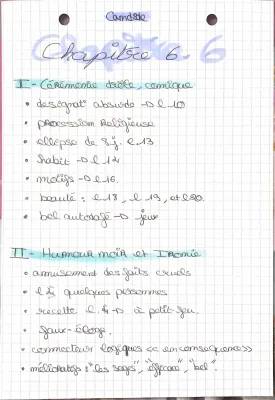 Candide
Chapitre 6
I - Cérémonie drôle, comique
• designat° absurde -D l 10
• procession Religieuse
• ellipse de 8 j. l.13
• habit -D l 14
• motifs -D l 16
• beauté : l 18, l 19, et l 20
• bel autodafé -D jeu
II - Humour noir et Ironie
• amusement des faits cruels
• quelques personnes
• recette l. 4 -D à petit feu
• faux-éloge
• connecteur logiques << en conséquence >>
• mélioratifs : "les sages", "efficace", "bel"